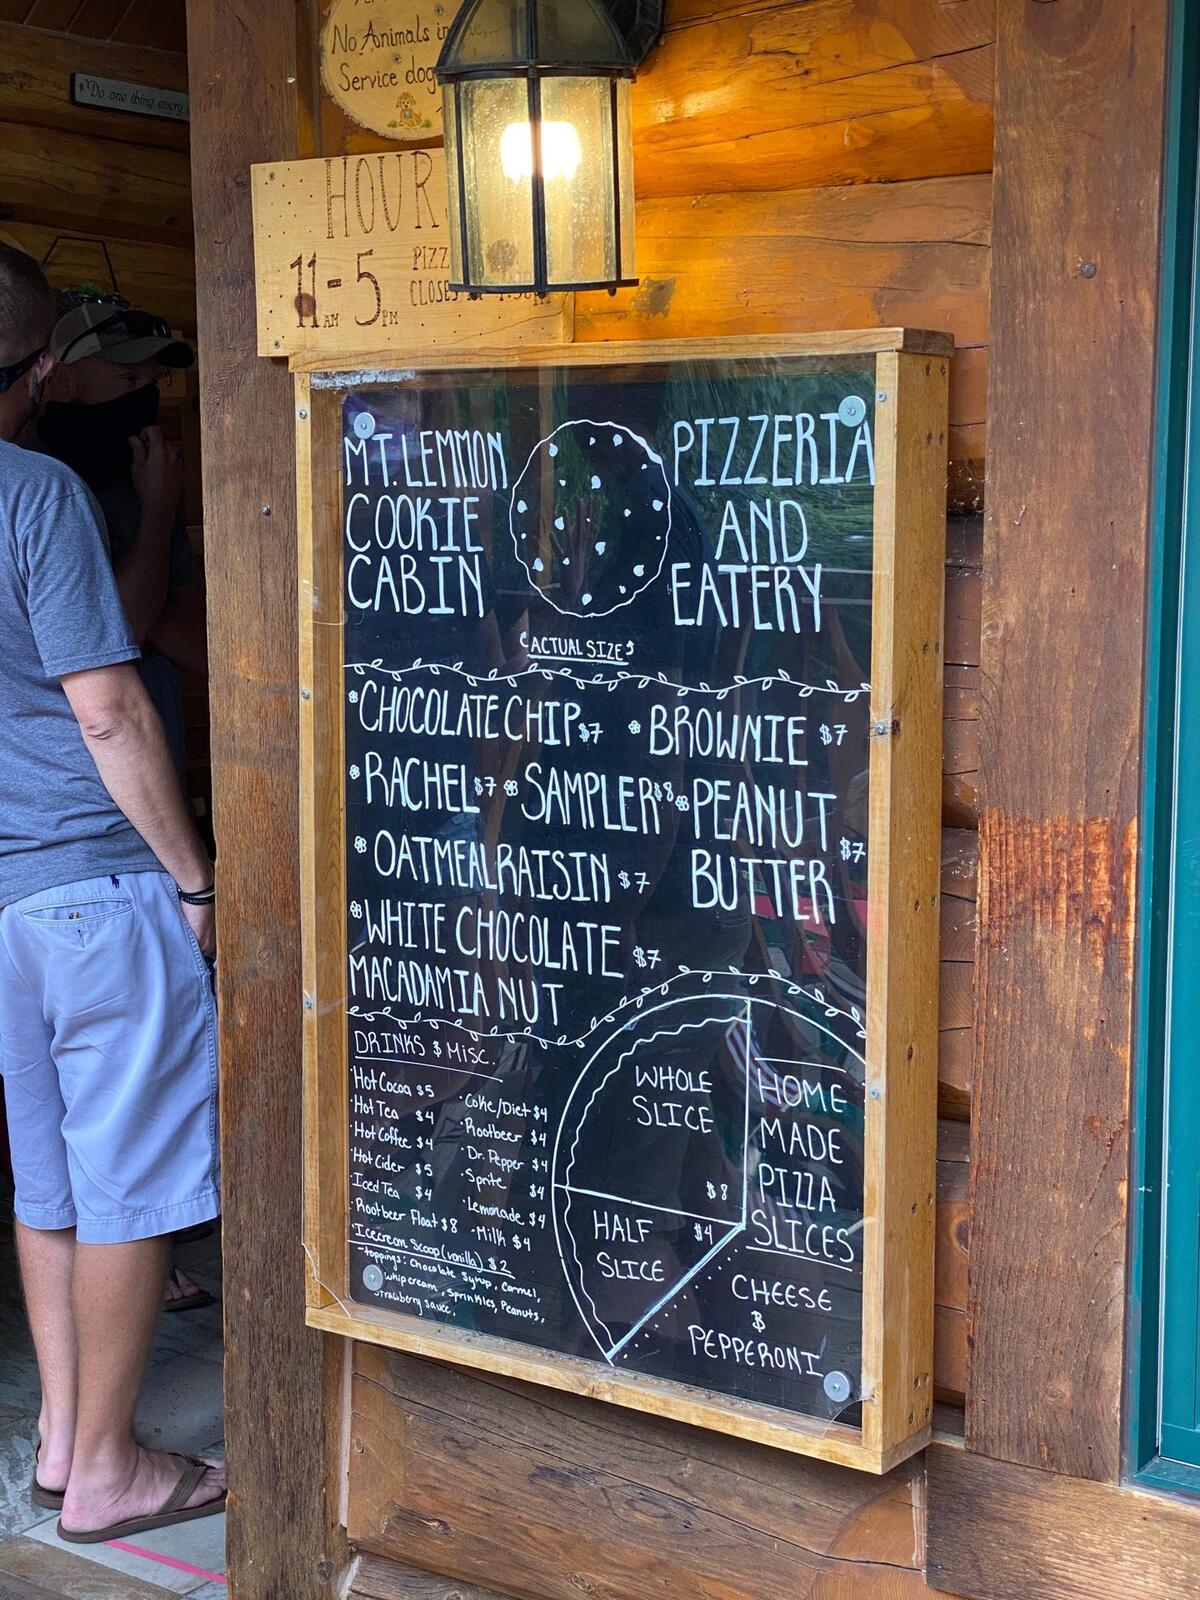 No Animals in
Service dog
"Do one thing every
HOUR
11AM-5PM
PIZZ
CLOSES
MT. LEMMON
COOKIE
CABIN
PIZZERIA
AND
EATERY
ACTUAL SIZE
CHOCOLATE CHIP $7
BROWNIE $7
RACHEL $7
SAMPLER $8
PEANUT
BUTTER $7
OATMEAL RAISIN $7
WHITE CHOCOLATE
MACADAMIA NUT $7
DRINKS & Misc.
Hot Cocoa $5
Hot Tea $4
Hot Coffee $4
Hot Cider $5
Iced Tea $4
Rootbeer Float $8
Coke/Diet $4
Rootbeer $4
Dr. Pepper $4
Sprite $4
Lemonade $4
Milk $4
Icecream Scoop (vanilla) $2
-toppings: Chocolate Syrup, Carmel,
Whipcream, Sprinkles, Peanuts,
Strawberry Sauce.
WHOLE
SLICE
$8
HALF $4
SLICE
HOME
MADE
PIZZA
SLICES
CHEESE
&
PEPPERONI